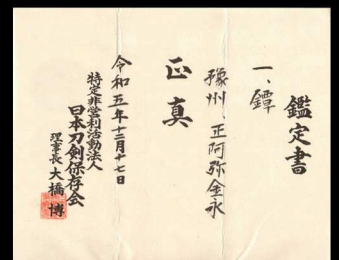 鑑定書
一、鐔
豫州 正阿弥金永
正真
令和五年十二月十七日
特定非営利活動法人
日本刀剣保存会
理事長 大橋 博